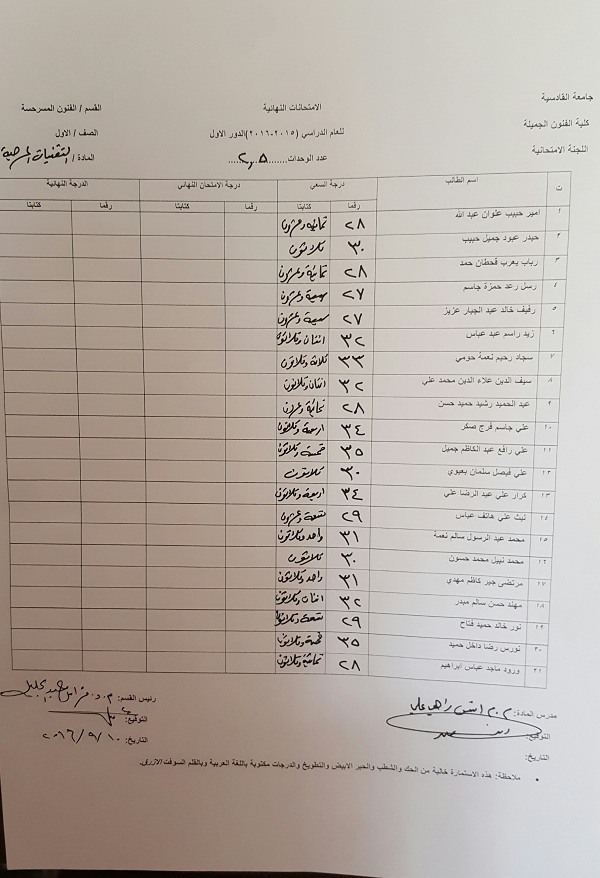 جامعة القادسية
كلية الفنون الجميلة
اللجنة الامتحانية
الامتحانات النهائية
للعام الدراسي (٢٠١٥-٢٠١٦)الدور الاول
عدد الوحدات.......٢,٥....
القسم / الفنون المسرحسة
الصف / الاول
المادة / التقنيات المسرحية
ت اسم الطالب درجة السعي درجة الامتحان النهائي الدرجة النهائية
رقما كتابتا رقما كتابتا رقما كتابتا
١ امير حبيب علوان عبد الله ٢٨ ثمانية وعشرون
٢ حيدر عبود جميل حبيب ٣٠ ثلاثون
٣ رباب يعرب قحطان حمد ٢٨ ثمانية وعشرون
٤ رسل رعد حمزة جاسم ٢٧ سبعة وعشرون
٥ رفيف خالد عبد الجبار عزيز ٢٧ سبعة وعشرون
٦ زيد راسم عبد عباس ٣٢ اثنان وثلاثون
٧ سجاد رحيم نعمة حومي ٣٣ ثلاثة وثلاثون
٨ سيف الدين علاء الدين محمد علي ٣٢ اثنان وثلاثون
٩ عبد الحميد رشيد حميد حسن ٢٨ ثمانية وعشرون
١٠ علي جاسم فرج صكر ٣٤ اربعة وثلاثون
١١ علي رافع عبد الكاظم جميل ٣٥ خمسة وثلاثون
١٢ علي فيصل سلمان بعيوي ٣٠ ثلاثون
١٣ كرار علي عبد الرضا علي ٣٤ اربعة وثلاثون
١٤ ليث علي هاتف عباس ٢٩ تسعة وعشرون
١٥ محمد عبد الرسول سالم نعمة ٣١ واحد وثلاثون
١٦ محمد نبيل محمد حسون ٣٠ ثلاثون
١٧ مرتضى جبر كاظم مهدي ٣١ واحد وثلاثون
١٨ مهند حسن سالم مبدر ٣٢ اثنان وثلاثون
١٩ نور خالد حميد فتاح ٢٩ تسعة وثلاثون
٢٠ نورس رضا داخل حميد ٣٥ خمسة وثلاثون
٢١ ورود ماجد عباس ابراهيم ٢٨ ثمانية وثلاثون
مدرس المادة: م.م
التوقيع:
التاريخ:
رئيس القسم: م.د.
التوقيع:
التاريخ: ٢٠١٦/٩/١٠
• ملاحظة: هذه الاستمارة خالية من الحك والشطب والحبر الابيض والتطويخ والدرجات مكتوبة باللغة العربية وبالقلم السوفت الازرق.